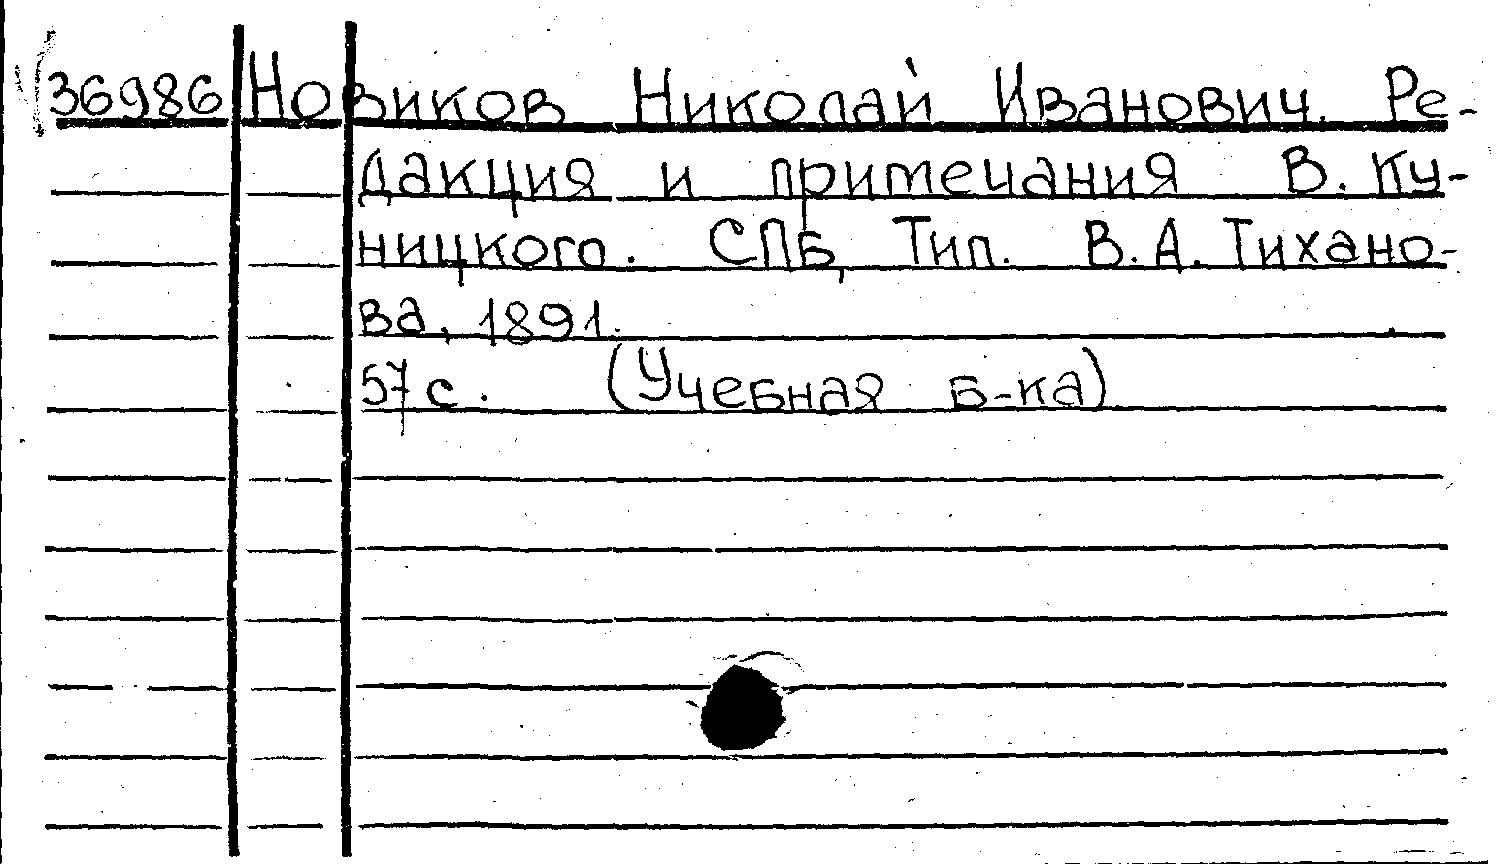 36986 Новиков Николай Иванович. Ре-
дакция и примечания В. Ку-
ницкого. СПБ, Тип. В.А. Тихано-
ва, 1891.
57 с. (Учебная б-ка)